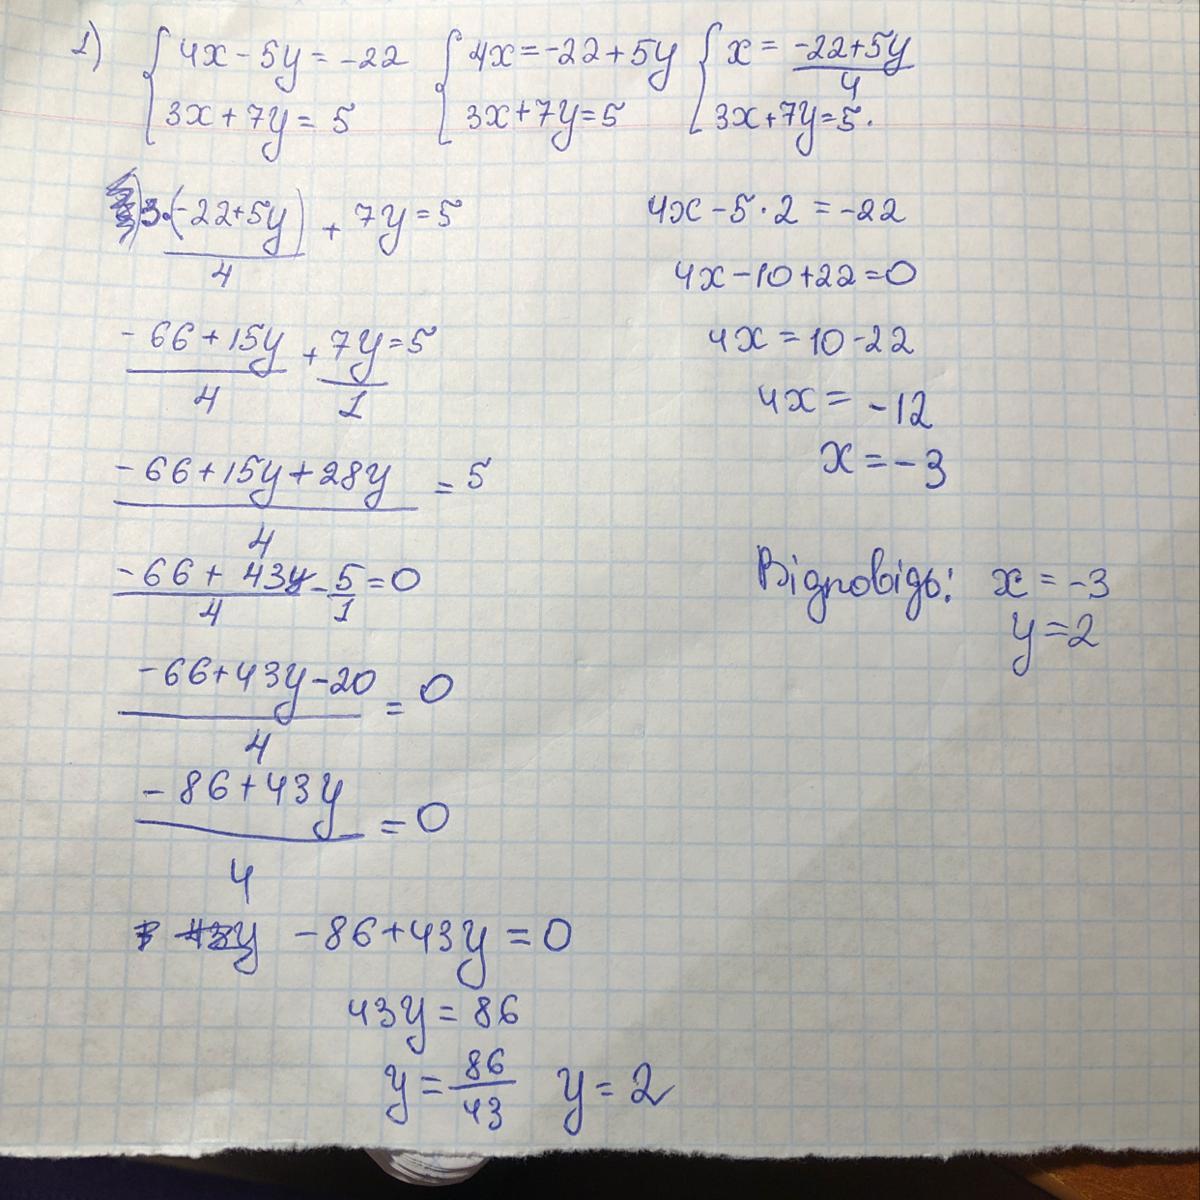 1) { 4x - 5y = -22 { 4x = -22 + 5y { x = (-22+5y)/4
3x + 7y = 5 3x + 7y = 5 3x + 7y = 5.
3·(-22+5y)/4 + 7y = 5
(-66+15y)/4 + 7y/1 = 5
(-66+15y+28y)/4 = 5
(-66+43y)/4 - 5/1 = 0
(-66+43y-20)/4 = 0
(-86+43y)/4 = 0
-86+43y = 0
43y = 86
y = 86/43 y = 2
4x - 5·2 = -22
4x - 10 + 22 = 0
4x = 10 - 22
4x = -12
x = -3
Відповідь: x = -3
y = 2